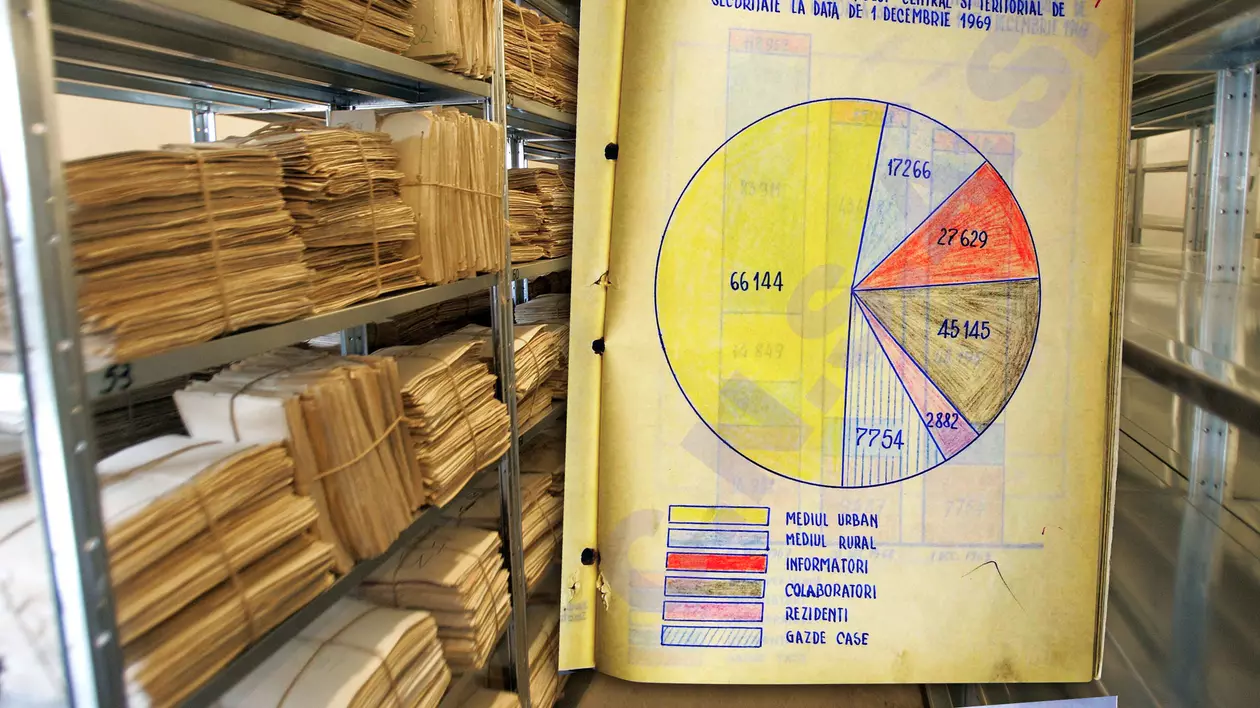 CENTRAL SI TERITORIAL DE
SECURITATE LA DATA DE 1 DECEMBRIE 1969
17266
27629
66144
45145
2882
7754
MEDIUL URBAN
MEDIUL RURAL
INFORMATORI
COLABORATORI
REZIDENTI
GAZDE CASE
53